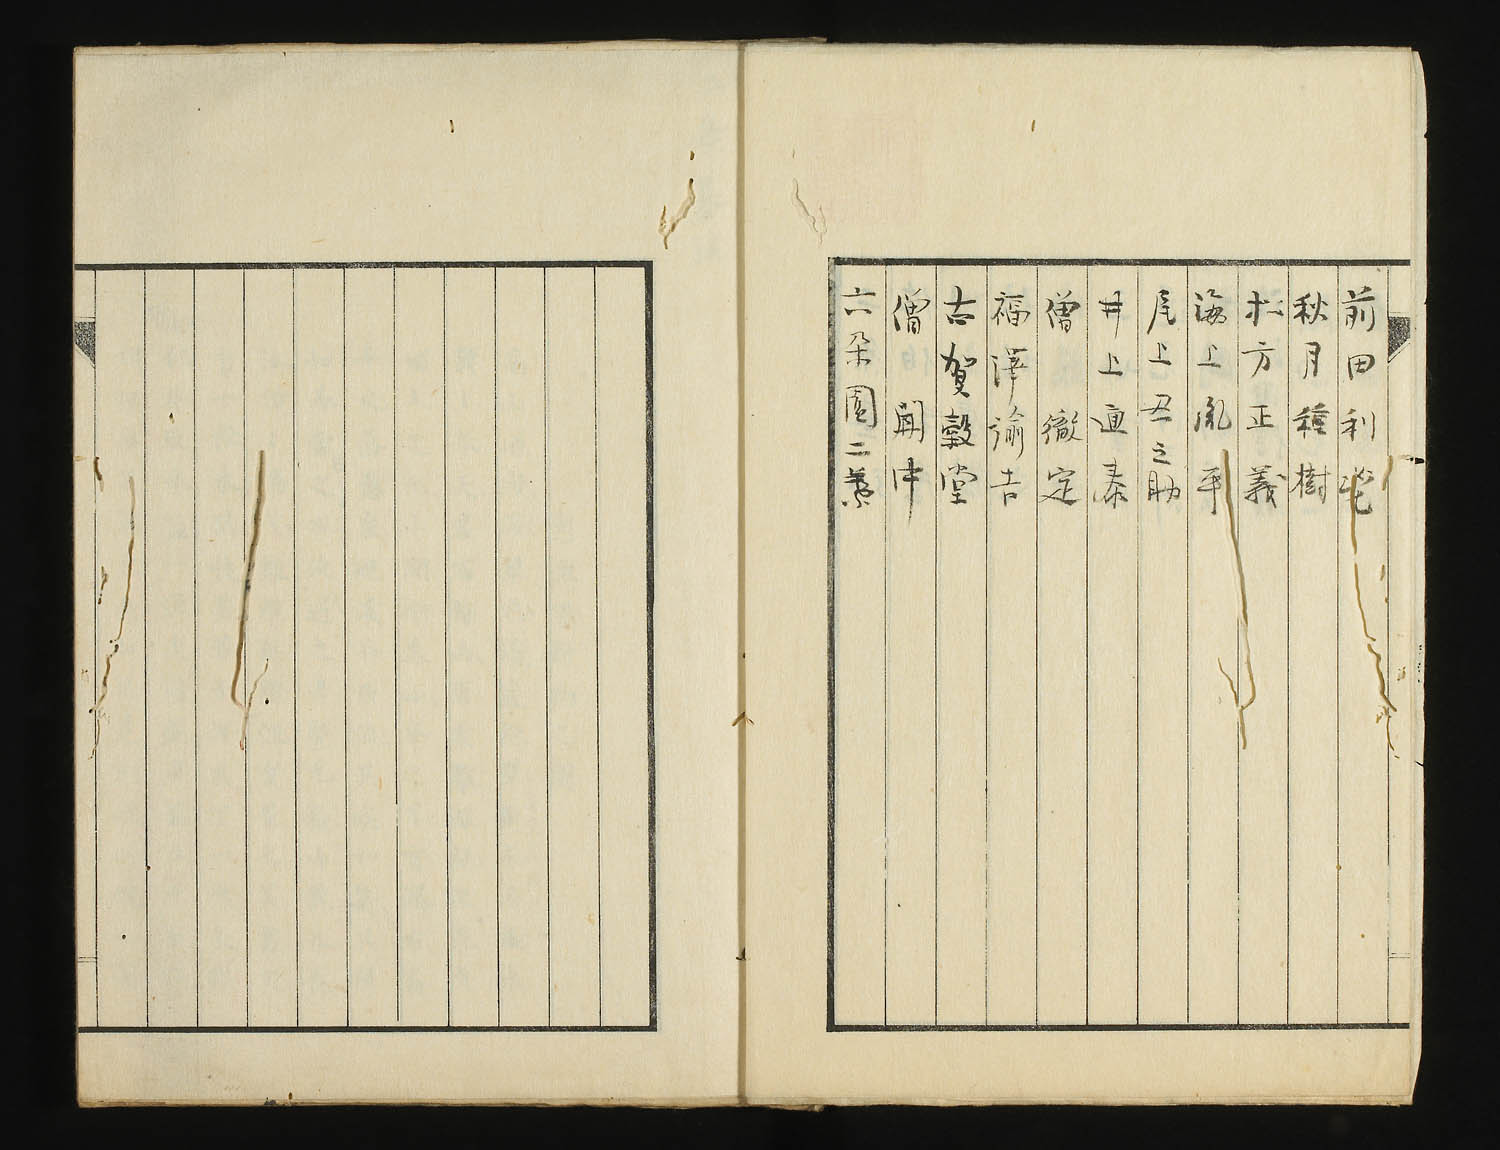 前田利鬯
秋月種樹
松方正義
海上胤平
尾上丑之助
井上通泰
僧徹定
福澤諭吉
古賀穀堂
僧聞中
六朶園二葉